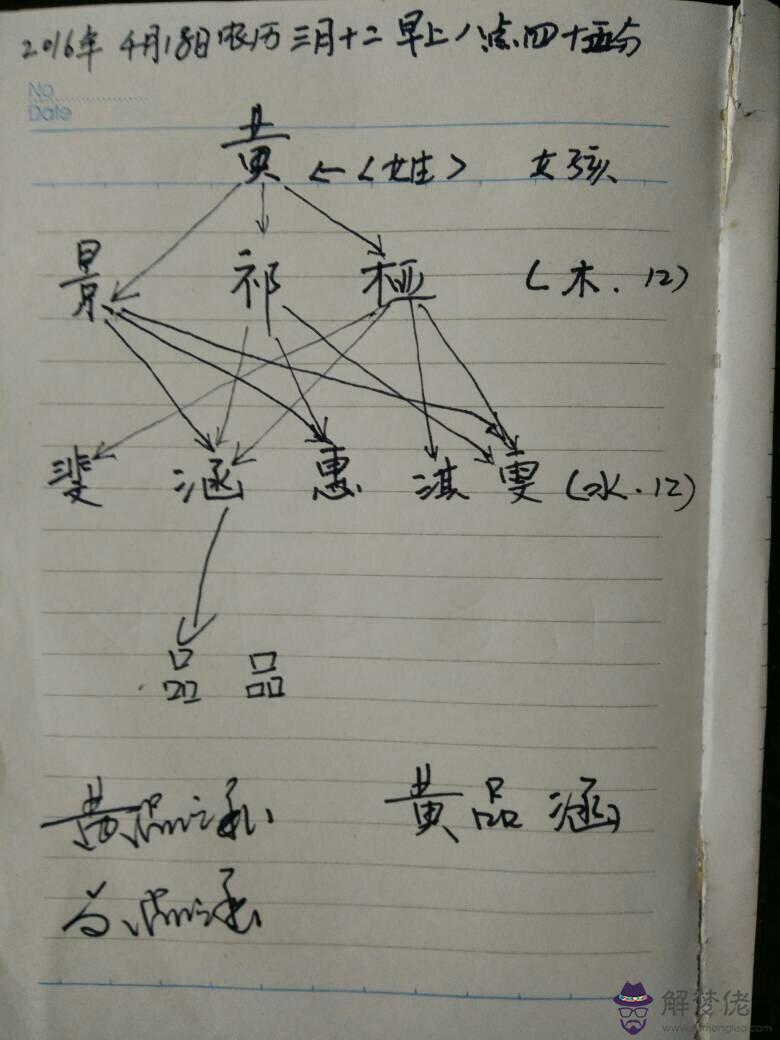 2016年 4月18日农历三月十二早上八点四十五分
No
Date
黄 ←〈姓〉 女孩
景 祁 極 (木.12)
斐 涵 惠 淇 雯 (水.12)
品 品
黄品涵 黄品涵
品涵
解梦佬